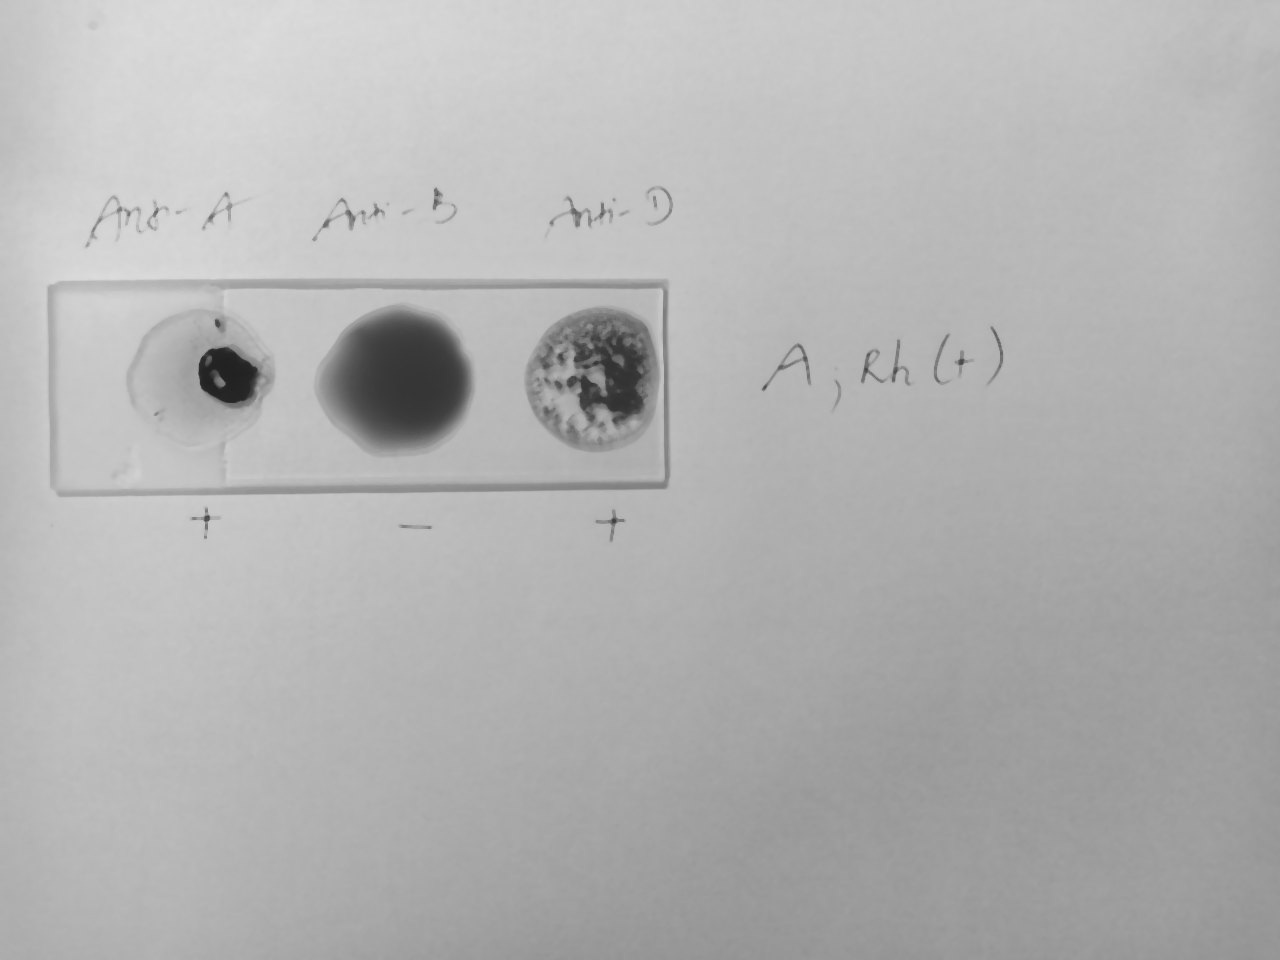 Anti-A Anti-B Anti-D
A, Rh (+)
+ - +